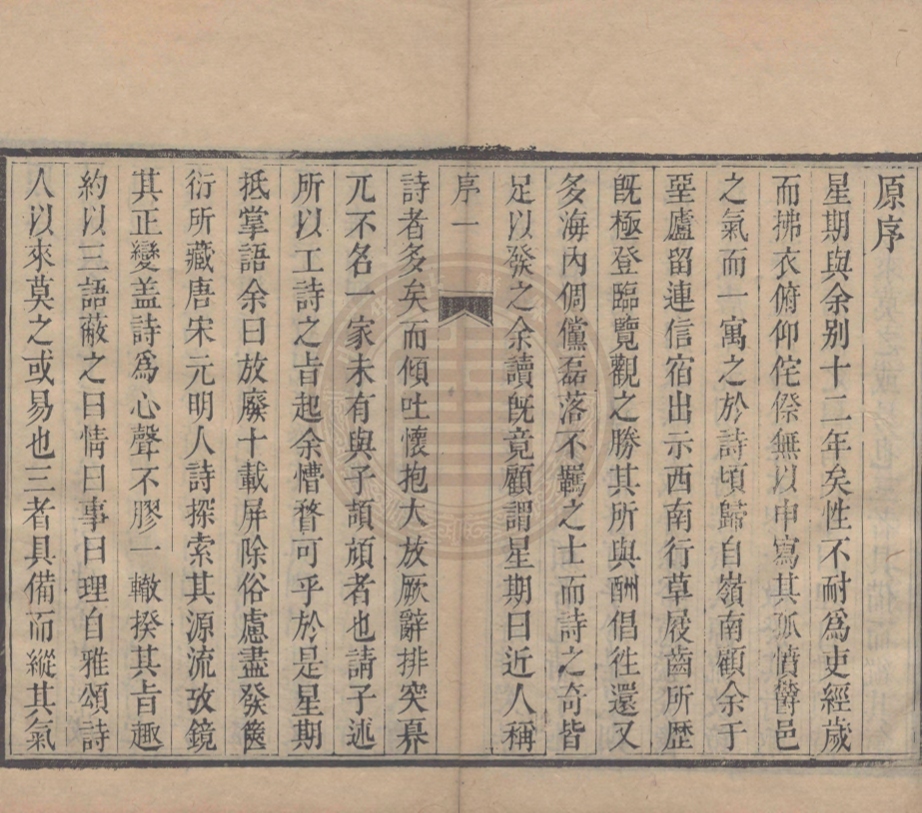 原序
星期與余別十二年矣性不耐爲吏經歲
而拂衣俯仰侘傺無以申寫其孤憤欝邑
之氣而一寓之於詩頃歸自嶺南顧余于
堊廬留連信宿出示西南行草屐齒所歴
旣極登臨覽觀之勝其所與酬倡徃還又
多海內倜儻磊落不羈之士而詩之奇皆
足以發之余讀旣竟顧謂星期曰近人稱
序一
詩者多矣而傾吐懷抱大放厥辭排突暴
兀不名一家未有與子頡頏者也請子述
所以工詩之旨起余懵瞀可乎於是星期
抵掌語余曰放廢十載屏除俗慮盡發篋
衍所藏唐宋元明人詩探索其源流攷鏡
其正變盖詩爲心聲不膠一轍揆其旨趣
約以三語蔽之曰情曰事曰理自雅頌詩
人以來莫之或易也三者具備而縱其氣